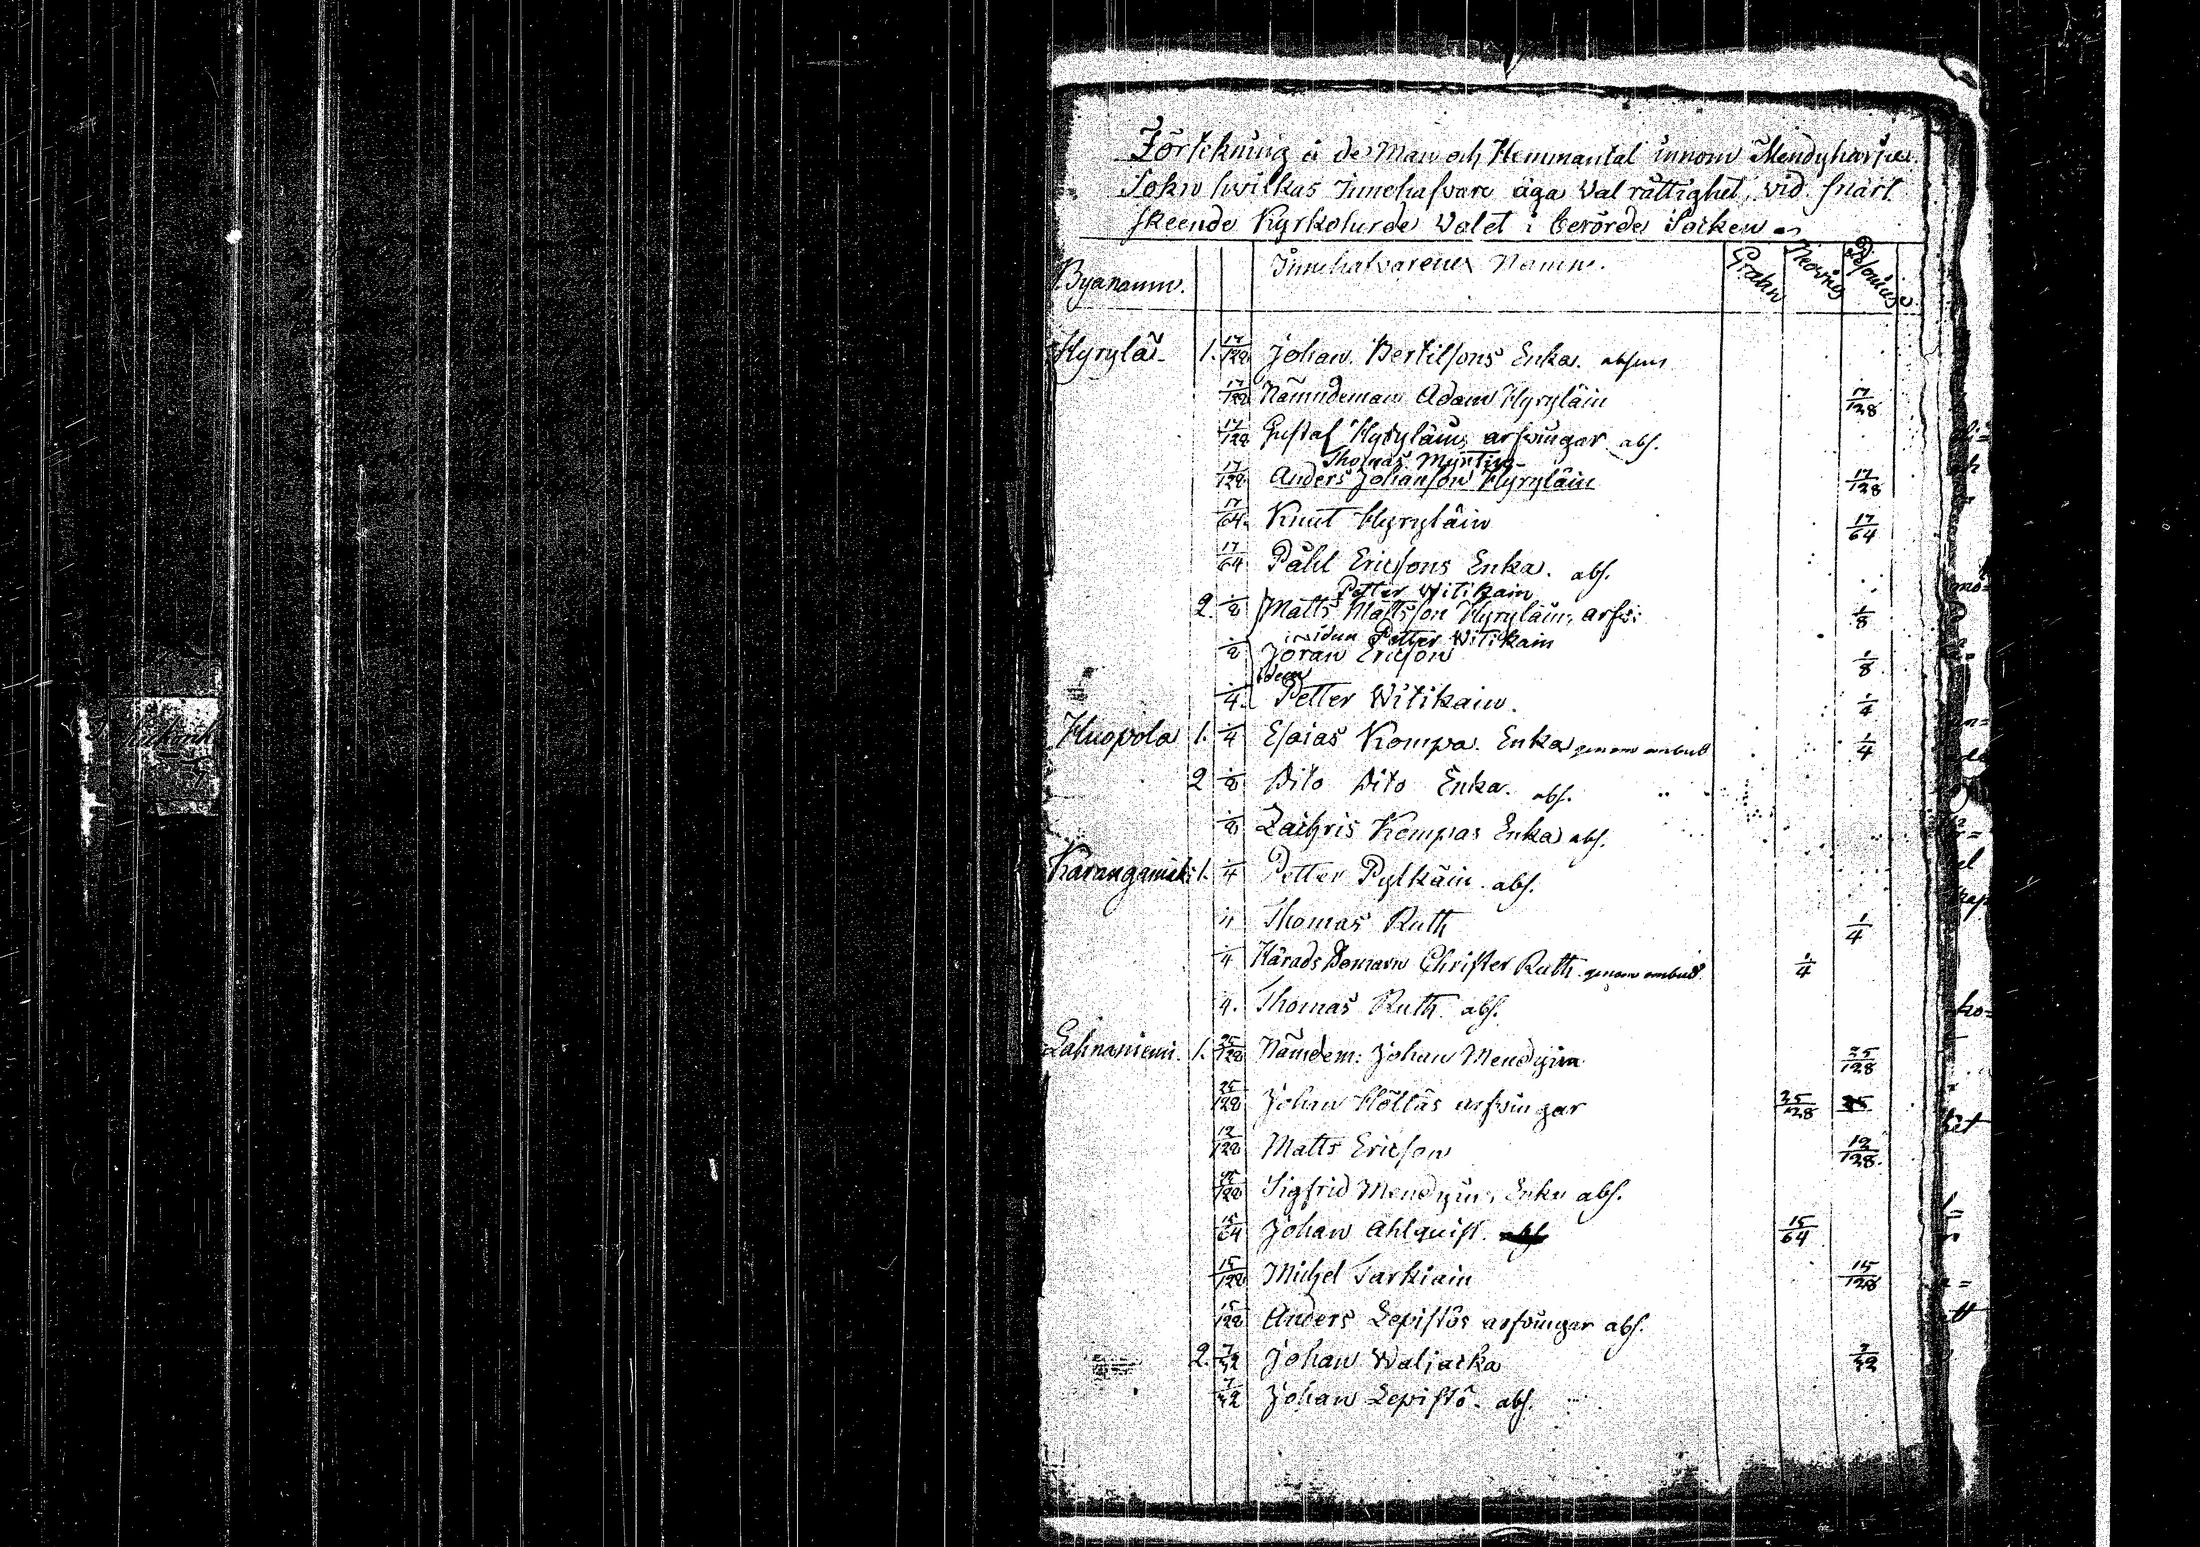 Förtekning å de Man och Hemmantal innom Mendyharju
Sokn hwilkas Innehafvare äga Val rättighet, vid snart
skeende Kyrkoherde Valet i berörde Socken
Byanamn. Innehafvarenes Namn. Grahn Poppius
Hyrylä 1. 17/128 Johan Bertilsons Enka. absens
17/128 Nämndeman Adam Hyryläin 17/128
17/128 Gustaf Hyryläins arfvingar abs.
Thomas Myntti
17/128 Anders Johanson Hyryläin 17/128
17/64 Knut Hyryläin 17/64
17/64 Påhl Ericsons Enka. abs.
Petter Witikain
2. 1/8 Matts Mattsson Hyryläins arfv: 1/8
Petter Witikain
1/8 Jöran Ericson 1/8
idem
1/4 Petter Witikain. 1/4
Huopola 1. 1/4 Esaias Kompa. Enka genom ombud 1/4
2 1/8 Dito Dito Enka. abs.
1/8 Zachris Kompas Enka abs.
Karangamäki 1. 1/4 Petter Pylkäin abs.
1/4 Thomas Ruth 1/4
1/4 Härads Domarn Christer Ruth genom ombud 1/4
1/4 Thomas Ruth abs.
Lahnaniemi. 1. 25/128 Nämdem: Johan Mendyin 25/128
25/128 Johan Höltäs arfvingar 25/128
12/128 Matts Ericson 12/128
Sigfrid Mendyins Enka abs.
15/64 Johan Ahlquist abs 15/64
15/128 Michel Tarkiain 15/128
15/128 Anders Lepistös arfvingar abs.
2. 7/32 Johan Waljacka 7/32
7/32 Johan Lepistö. abs.